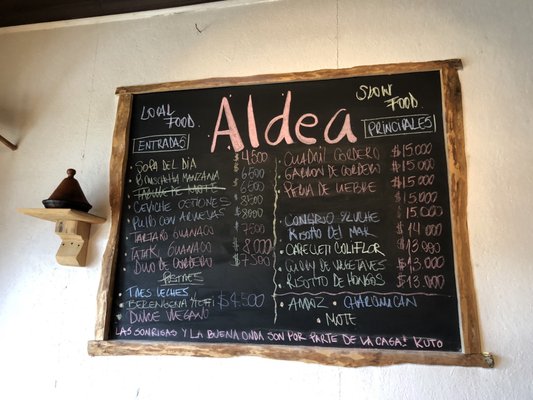 LOCAL FOOD
Aldea
SLOW FOOD
ENTRADAS
SOPA DEL DIA $4.500
BRUSCHETTA MANZANA 6.500
DE MOTE 6000
CEVICHE OSTIONES 8500
PULPO CON ARVEJAS 8000
TARTARO GUANACO 7800
TATAKI GUANACO 8.000
DUO DE CORDERO $7.500
POSTRES
TRES LECHES
BERENGENA $4.500
DULCE VEGANO
PRINCIPALES
CUADRIL CORDERO $15.000
GARRON DE CORDERO $15.000
PIERNA DE LIEBRE $15.000
$15.000
CONGRIO $15.000
RISOTTO DEL MAR $14.000
CAPELLETI COLIFLOR $13.000
CURRY DE VEGETALES $13.000
RISOTTO DE HONGOS $13.000
MOTE
LAS SONRISAS Y LA BUENA ONDA SON POR PARTE DE LA CASA! KUTO